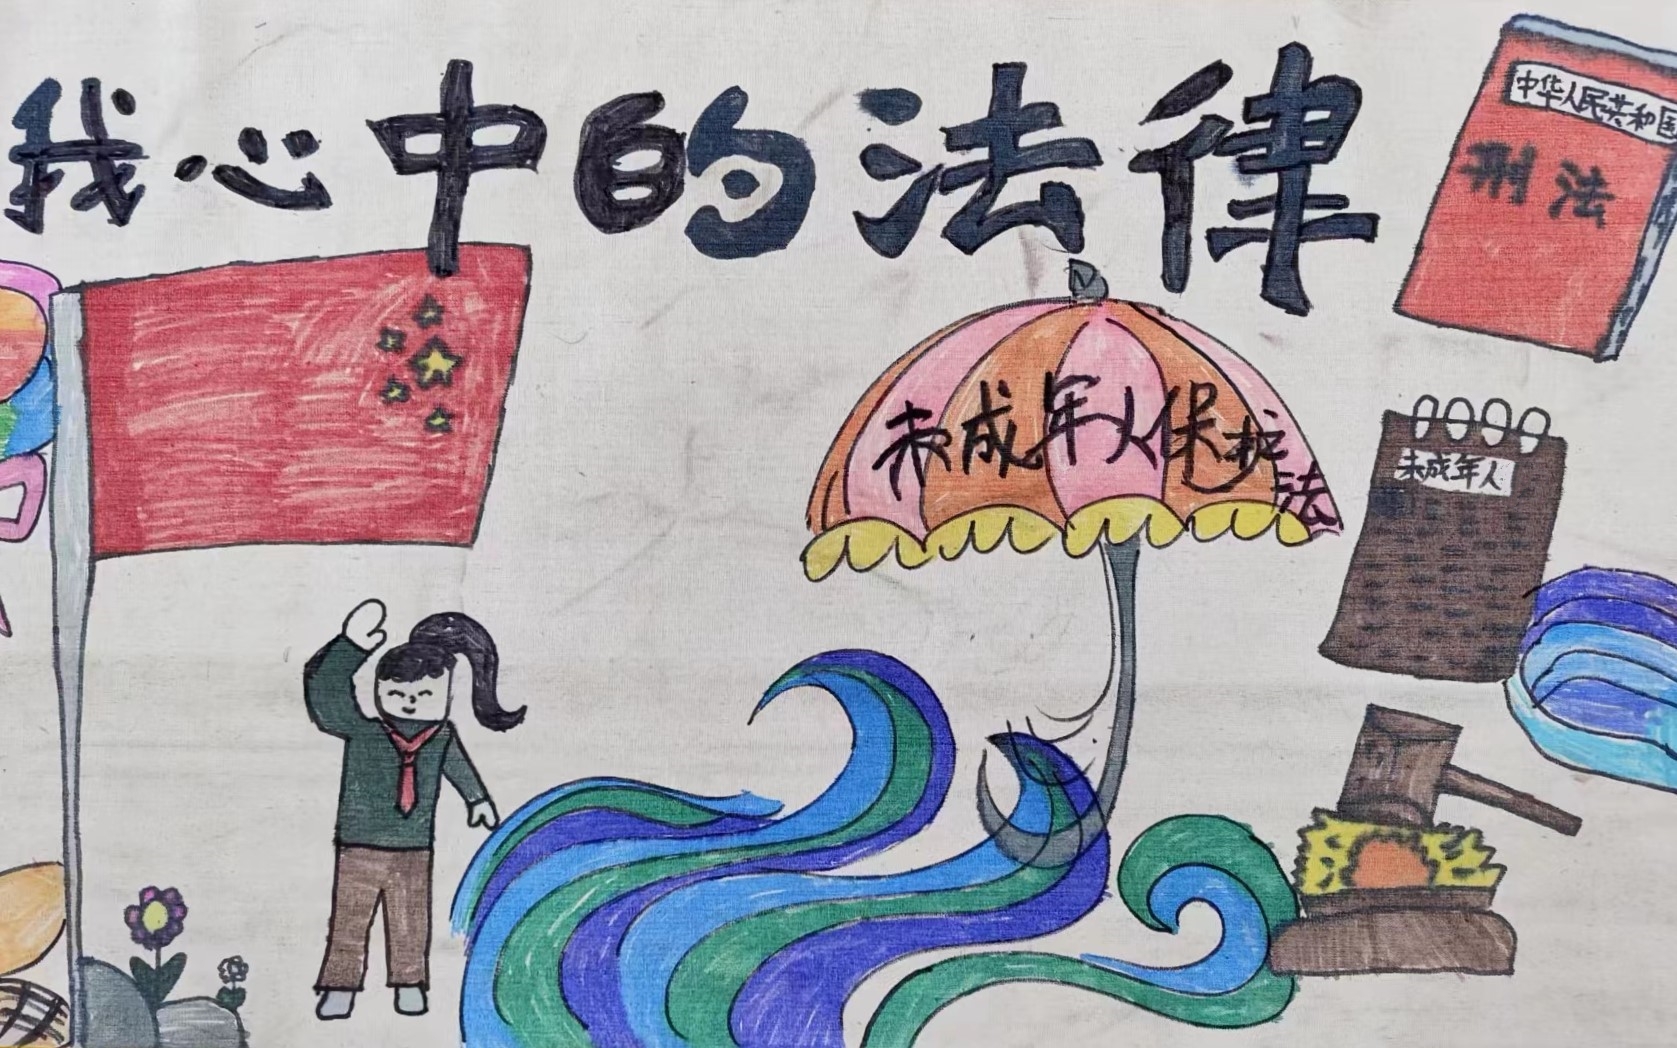 我心中的法律
中华人民共和国
刑法
未成年人保护法
未成年人